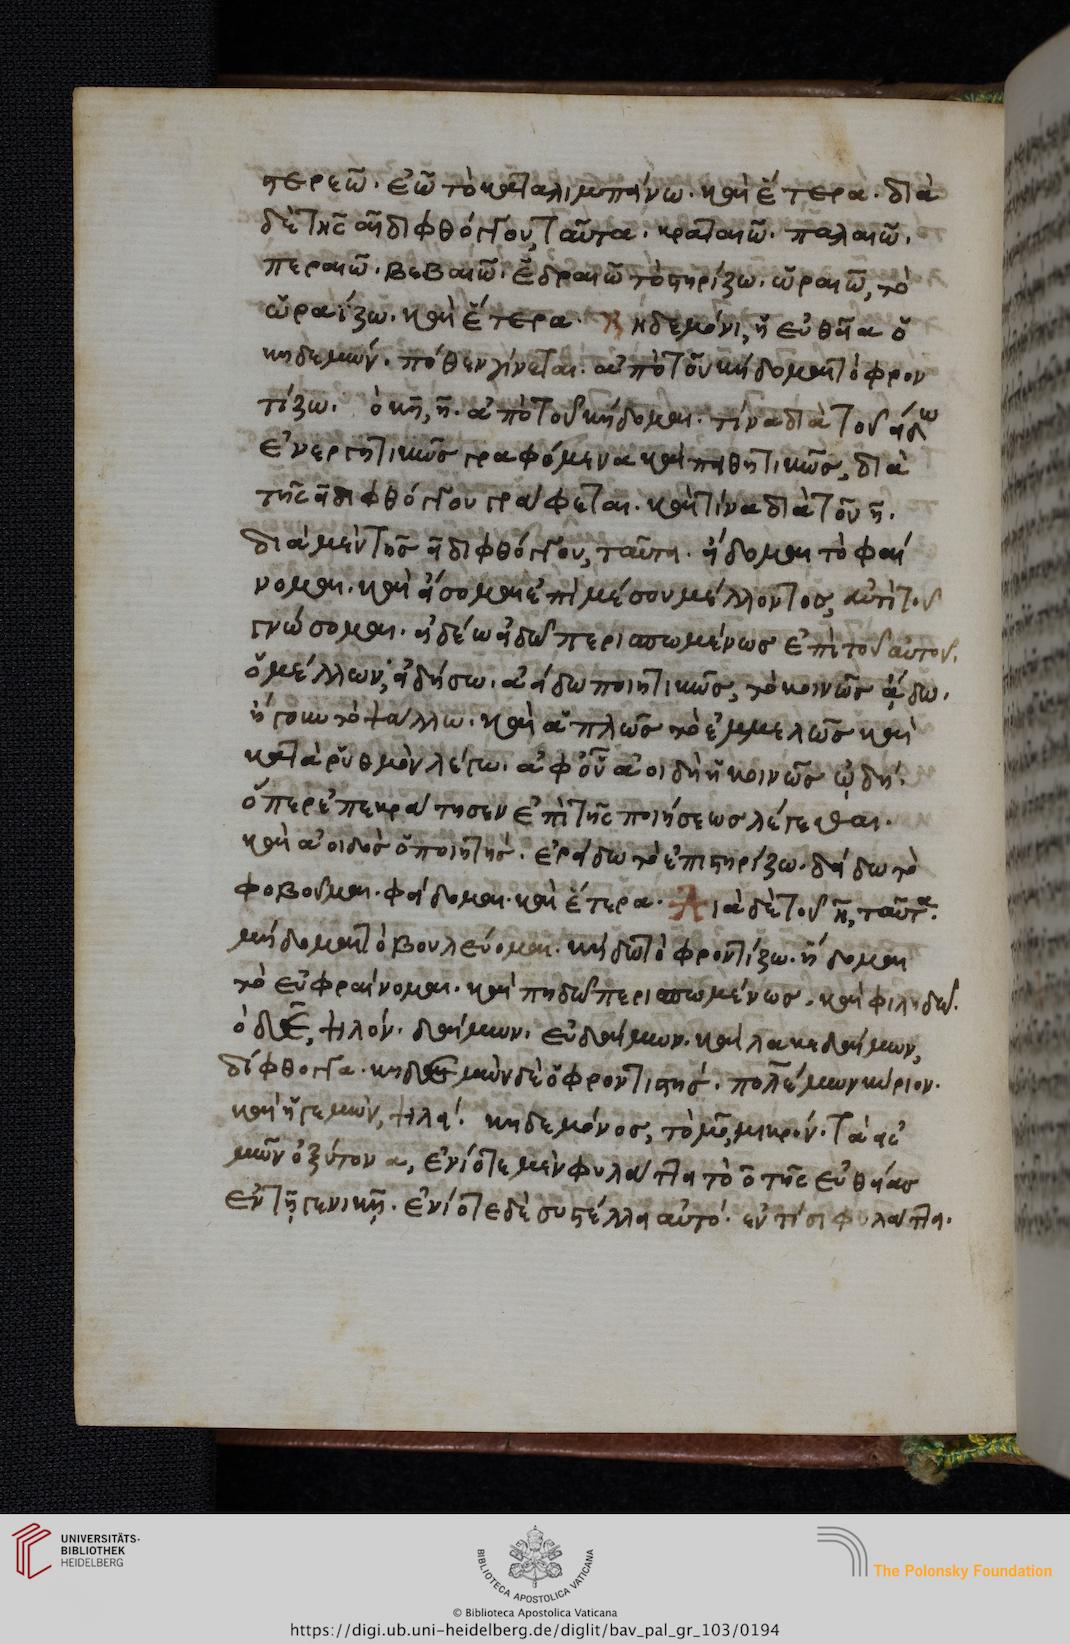 στερεῶ. ἐῶ τὸ καταλιμπάνω. καὶ ἕτερα. διὰ
δὲ τῆς αι διφθόγγου, ταῦτα. κραταιῶ. παλαιῶ.
περαιῶ. βεβαιῶ. ἑδραιῶ τὸ στηρίζω. ὡραιῶ, τὸ
ὡραΐζω. καὶ ἕτερα. Κηδεμόνι, ἡ εὐθεῖα ὁ
κηδεμών. πόθεν γίνεται. ἀπὸ τοῦ κήδομαι τὸ φρον
τίζω. ὁ κῆ, η. ἀπὸ τοῦ κήδομαι. τίνα διὰ τοῦ
ἐνεργητικῶς γραφόμενα καὶ παθητικῶς, διὰ
τῆς ει διφθόγγου γράφεται. καὶ τίνα διὰ τοῦ η.
διὰ μὲν τῆς ει διφθόγγου, ταῦτα. εἴδομαι τὸ φαί
νομαι. καὶ εἴσομαι ἐπὶ μέσου μέλλοντος, ἀντὶ τοῦ
γνώσομαι. εἰδέω εἰδῶ περισπωμένως ἐπὶ τοῦ αὐτοῦ.
ὁ μέλλων, εἰδήσω. ἀείδω ποιητικῶς, τὸ κοινῶς ᾄδω.
ἤγουν τὸ ψάλλω. καὶ ἁπλῶς τὸ ἐμμελῶς καὶ
κατὰ ῥυθμὸν λέγω. ἀφ' οὗ ἀοιδὴ ἡ κοινῶς ᾠδή.
ὅπερ ἐπεκράτησεν ἐπὶ τῆς ποιήσεως λέγεσθαι.
καὶ ἀοιδὸς ὁ ποιητής. ἐρείδω τὸ ἐπιστηρίζω. δείδω τὸ
φοβοῦμαι. φείδομαι. καὶ ἕτερα. Διὰ δὲ τοῦ η, ταῦτα.
μήδομαι τὸ βουλεύομαι. κήδω τὸ φροντίζω. ἥδομαι
τὸ εὐφραίνομαι. καὶ πηδῶ περισπωμένως. καὶ φιληδῶ.
ψιλόν. δαίμων. εὐδαίμων. καὶ λακεδαίμων,
δίφθογγα. κηδεμὼν δὲ ὁ φροντιστής. πολέμων κύριον.
καὶ ἡγεμών, ψιλά. κηδεμόνος, τὸ μο, μικρόν. Τὰ εἰς
μων ὀξύτονα, ἐνίοτε μὲν φυλάττει τὸ ο τῆς εὐθείας
ἐν τῇ γενικῇ. ἐνίοτε δὲ συστέλλει αὐτό. ἐν τίσι φυλάττει.
UNIVERSITÄTS-
BIBLIOTHEK
HEIDELBERG
BIBLIOTECA APOSTOLICA VATICANA
The Polonsky Foundation
© Biblioteca Apostolica Vaticana
https://digi.ub.uni-heidelberg.de/diglit/bav_pal_gr_103/0194